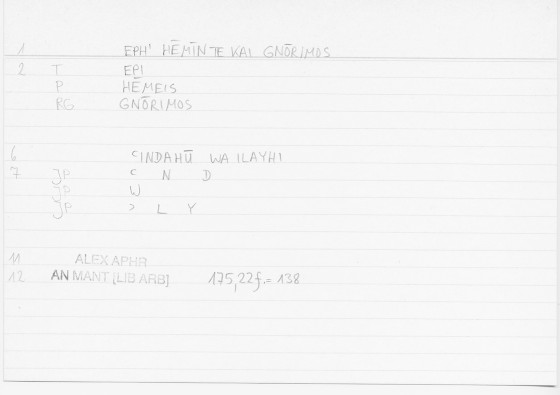 1 EPH' HĒMĪN TE KAI GNŌRIMOS
2 T EPI
P HĒMEIS
RG GNŌRIMOS
6 ʿINDAHŪ WA ILAYHI
7 JP ʿ N D
JP W
JP ʾ L Y
11 ALEX APHR
12 AN MANT [LIB ARB] 175,22f.= 138